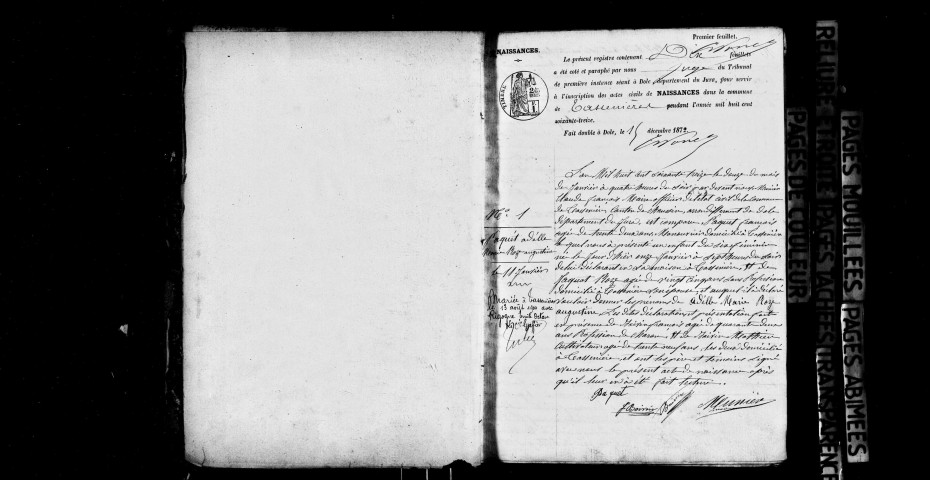 Premier feuillet.
NAISSANCES.
Le présent registre contenant feuillets
a été coté et paraphé par nous Juge du Tribunal
de première instance séant à Dole, département du Jura, pour servir
à l'inscription des actes civils de NAISSANCES dans la commune
de Tassenières pendant l'année mil huit cent
soixante-treize.
Fait double à Dole, le 15 décembre 1872
L'an Mil huit cent soixante treize le douze du mois
de Janvier à quatre heures du soir par devant nous Meunier
Claude français Maire officier de l'état civil de la Commune
de Tassenières Canton de arrondissement de dole
département du Jura, est comparu Paquet français
agé de trente deux ans Manouvrier domicilié à Tassenières
le quel nous à présenté un enfant du sexe féminin
né le Jour d'hier onze Janvier à sept heures du soir
de lui déclarant en sa maison à Tassenières Et de
Jaquot Roze agée de vingt cinq ans sans Profession
domiciliée à Tassenières son épouse, et auquel il a déclaré
vouloir donner les prénoms de adille Marie Roze
augustine. Les dites déclaration et présentation faites
en présence de français agé de quarante deux
ans Profession de Et de Mathieu
Cultivateur agé de trente neuf ans les deux domiciliés
à Tassenières, et ont les père et témoins signé
avec nous le présent acte de naissance après
qu'il leur en à été fait lecture.
N° 1
Paquet adille
Marie Roze augustine
le 11 Janvier
Mariée à Tassenières
le 13 août avec
Paquet
Meunier
REPLIURE ETROITE PAGES TACHEES TRANSPARENCE
PAGES DE COULEUR
PAGES MOUILLEES PAGES ABIMEES